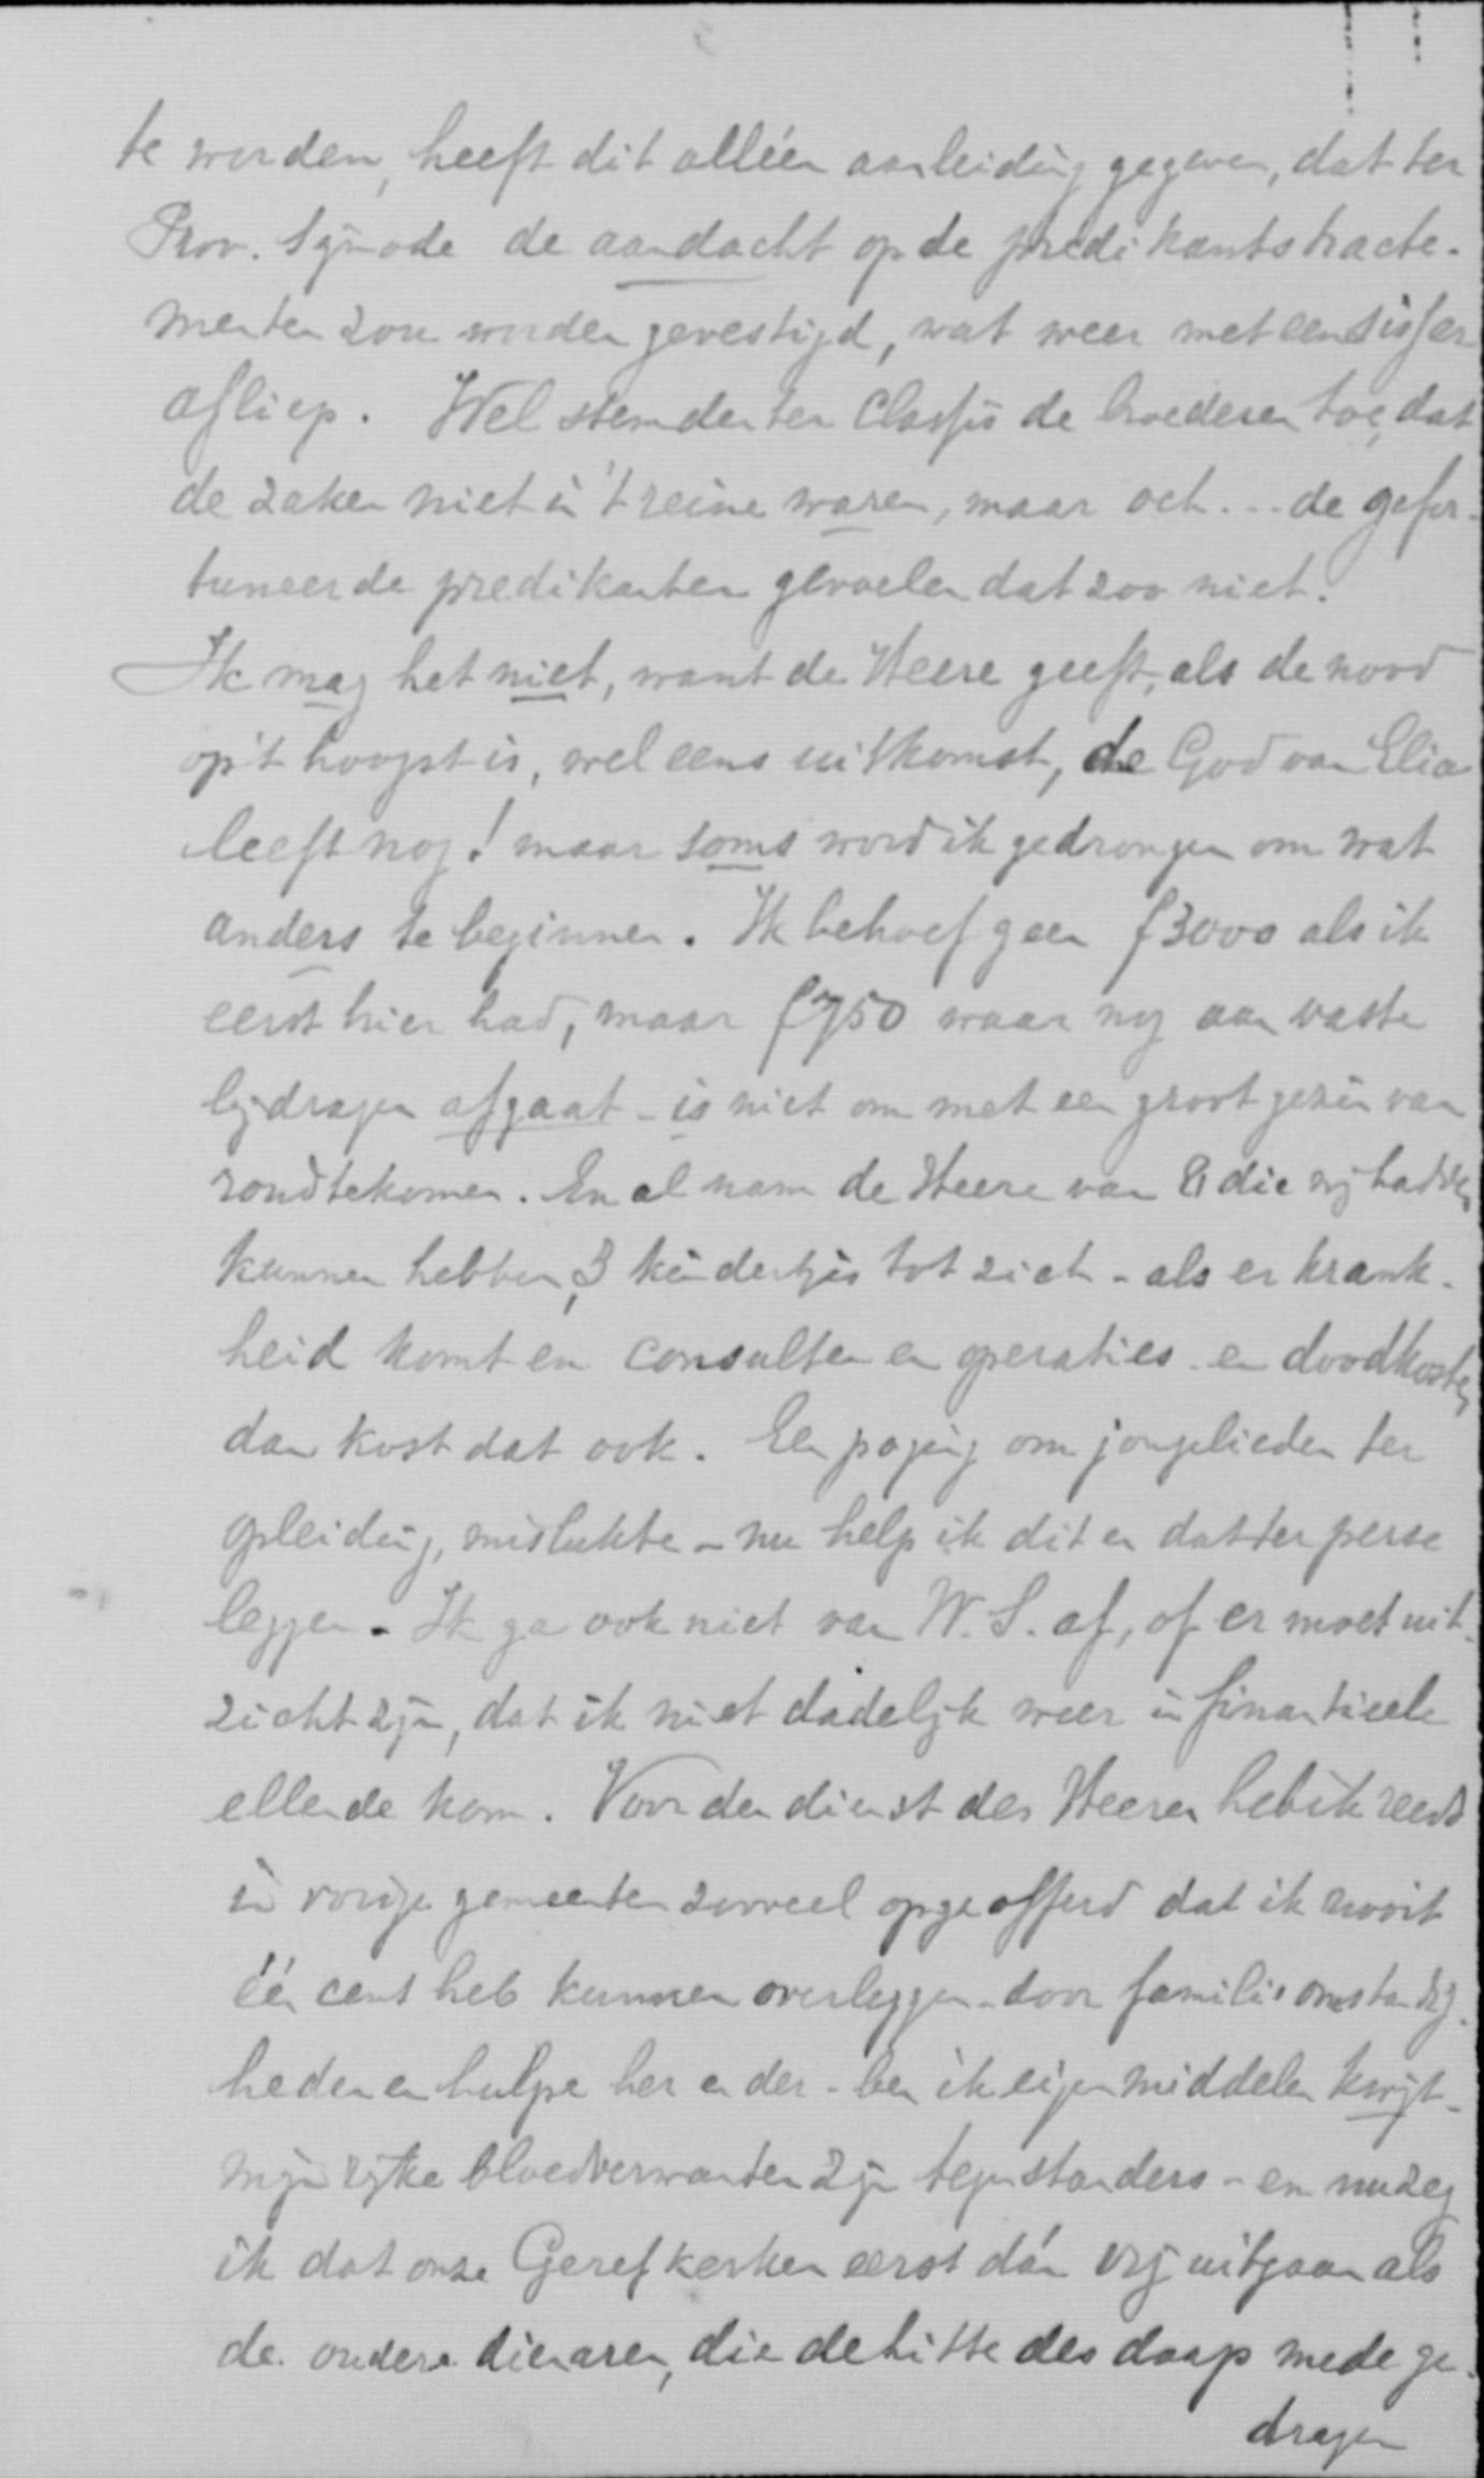 te worden, heeft dit alléén aanleiding gegeven, dat ter
Prov. Synode de aandacht op de predikantstracte-
menten zou worden gevestigd, wat weer met een sisser
afliep. Wel stemden ter Classis de broederen toe, dat
de zaken niet in 't reine waren, maar och... de gefor-
tuneerde predikanten gevoelen dat zoo niet.
Ik mag het niet, want de Heere geeft, als de nood
op 't hoogst is, wel eens uitkomst, de God van Elia
leeft nog! maar soms word ik gedrongen om wat
anders te beginnen. Ik behoef geen f3000 als ik
eerst hier had, maar f750 waar nog aan vaste
bijdragen afgaat - is niet om met een groot gezin van
rondtekomen. En al nam de Heere van 8 die wij hadden
kunnen hebben, 3 kindertjes tot zich - als er krank-
heid komt en consulten en operaties en doodkosten,
dan kost dat ook. Een poging om jongelieden ter
opleiding, mislukte - nu help ik dit en dat ter perse
leggen. Ik ga ook niet van W.S. af, of er moet uit-
zicht zijn, dat ik niet dadelijk weer in finantieele
ellende kom. Voor den dienst des Heeren heb ik reeds
in vorige gemeenten zooveel opgeofferd dat ik nooit
één cent heb kunnen overleggen - door familieomstandig-
heden en hulpe her en der - ben ik eigen middelen kwijt -
mijn rijke bloedverwanten zijn tegenstanders - en nu zeg
ik dat onze Geref kerken eerst dán vrij uitgaan als
de oudere dienaren, die de hitte des daags mede ge-
dragen